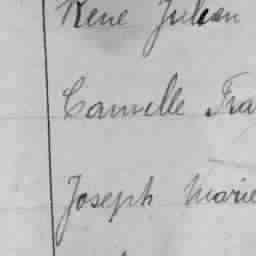 Rene Julien
Camille Fra
Joseph Marie